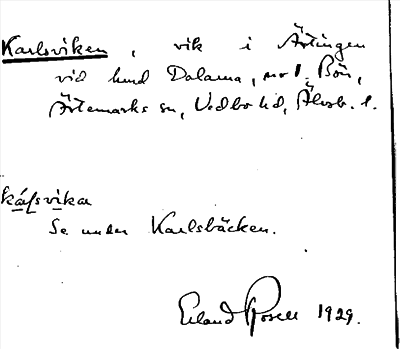 Karlsviken, vik i Ärtingen
vid lund Dalarna, mot Bön,
Ärtemarks sn, Vedbo hd, Älvsb. l.
kálsvikar
Se under Karlsbäcken.
Erland Rosell 1929.